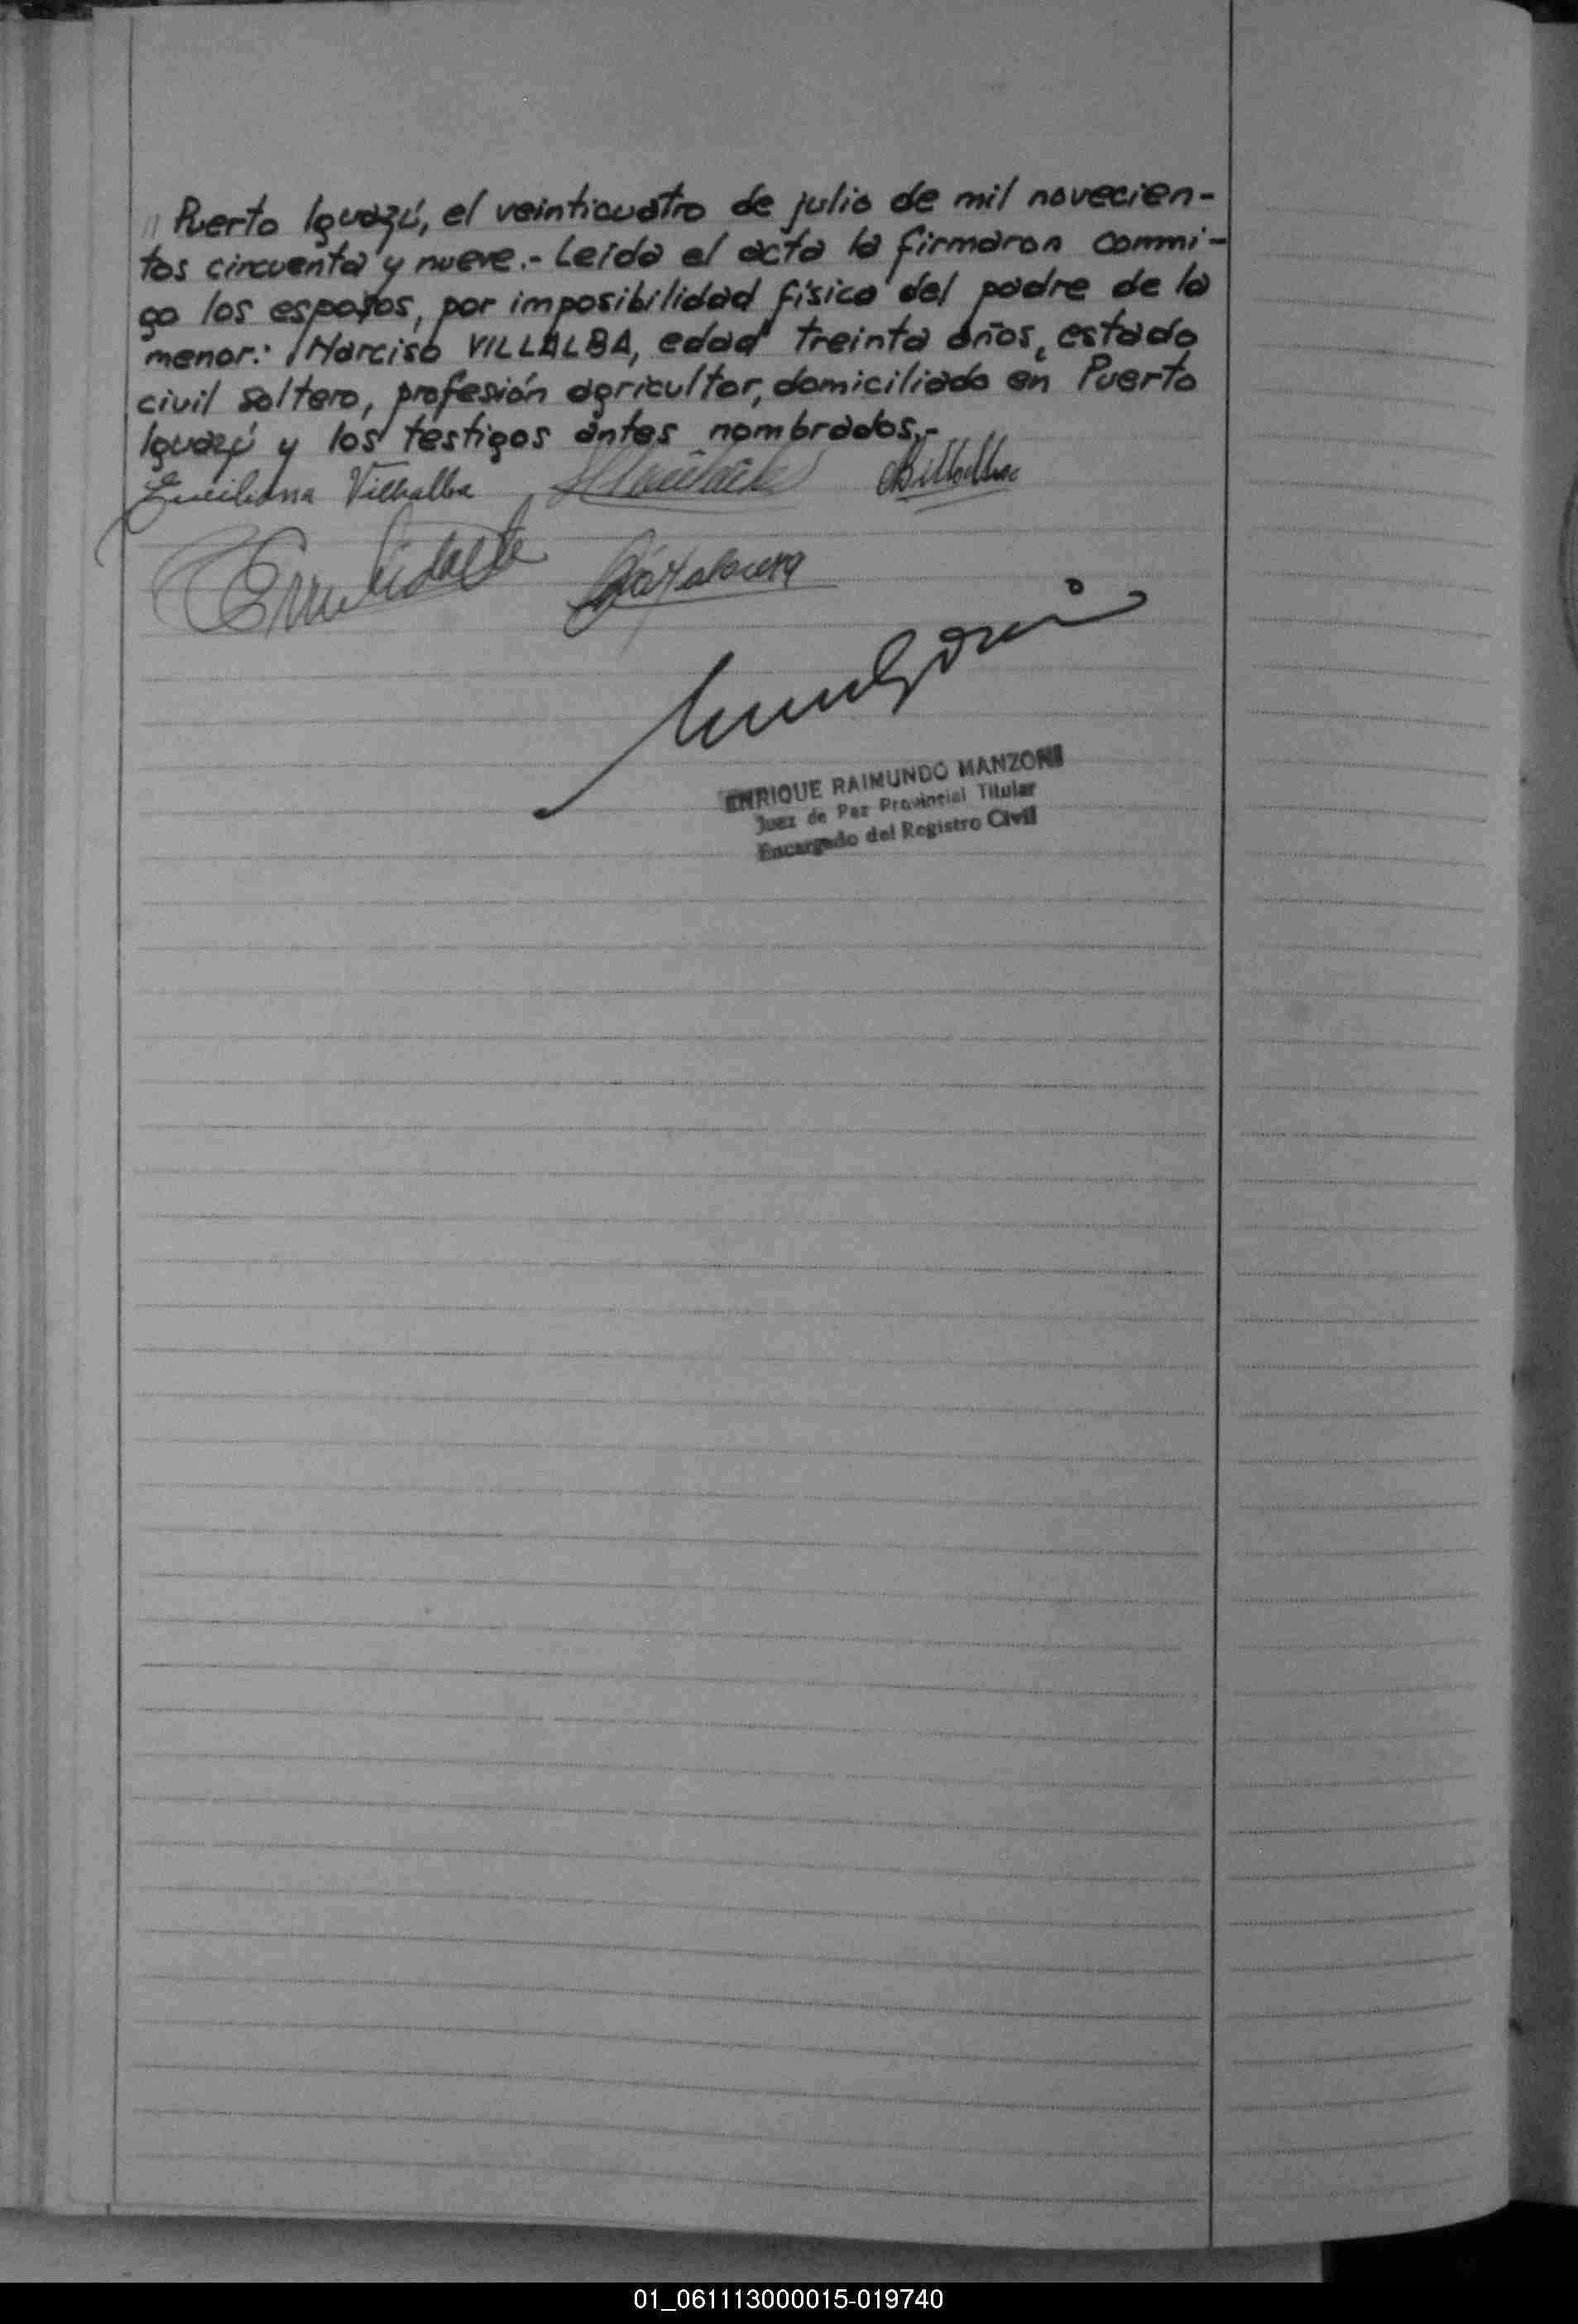 " Puerto Iguazú, el veinticuatro de julio de mil novecien-
tos cincuenta y nueve.- Leída el acta la firmaron conmi-
go los esposos, por imposibilidad física del padre de la
menor: Narciso VILLALBA, edad treinta años, estado
civil soltero, profesión agricultor, domiciliado en Puerto
Iguazú y los testigos antes nombrados.-
Emiliana Villalba
ENRIQUE RAIMUNDO MANZONI
Juez de Paz Provincial Titular
Encargado del Registro Civil
01_061113000015-019740